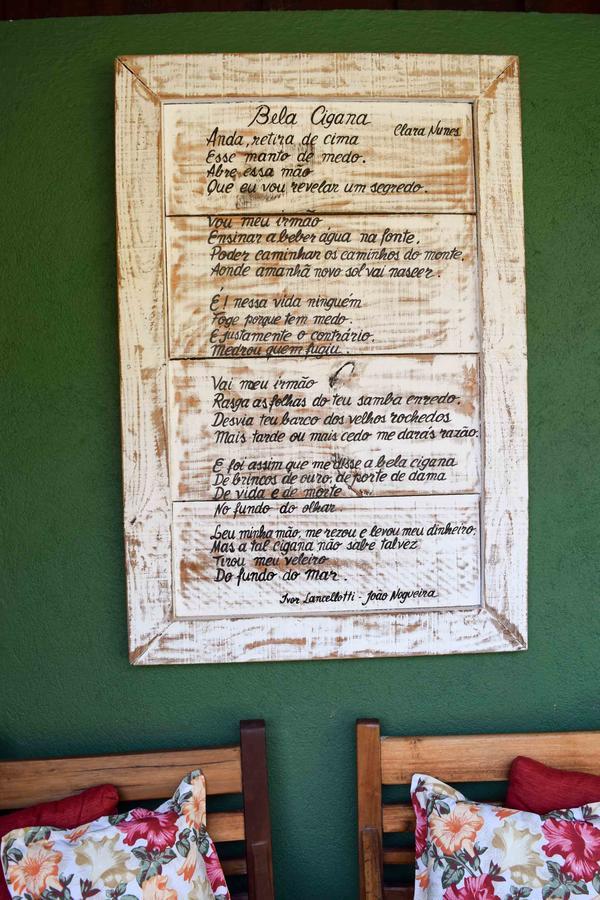 Bela Cigana
Clara Nunes
Anda, retira de cima
Esse manto de medo.
Abre essa mão
Que eu vou revelar um segredo.
Vou meu irmão
Ensinar a beber água na fonte,
Poder caminhar os caminhos do monte,
Aonde amanhã novo sol vai nascer.
É! nessa vida ninguém
Foge porque tem medo.
É justamente o contrário.
Medrou quem fugiu.
Vai meu irmão
Rasga as folhas do teu samba enredo,
Desvia teu barco dos velhos rochedos
Mais tarde ou mais cedo me darás razão.
E foi assim que me disse a bela cigana
De brincos de ouro, de porte de dama
De vida e de morte
No fundo do olhar.
Leu minha mão, me rezou e levou meu dinheiro,
Mas a tal cigana não sabe talvez
Tirou meu veleiro
Do fundo do mar.
Ivor Lancellotti - João Nogueira